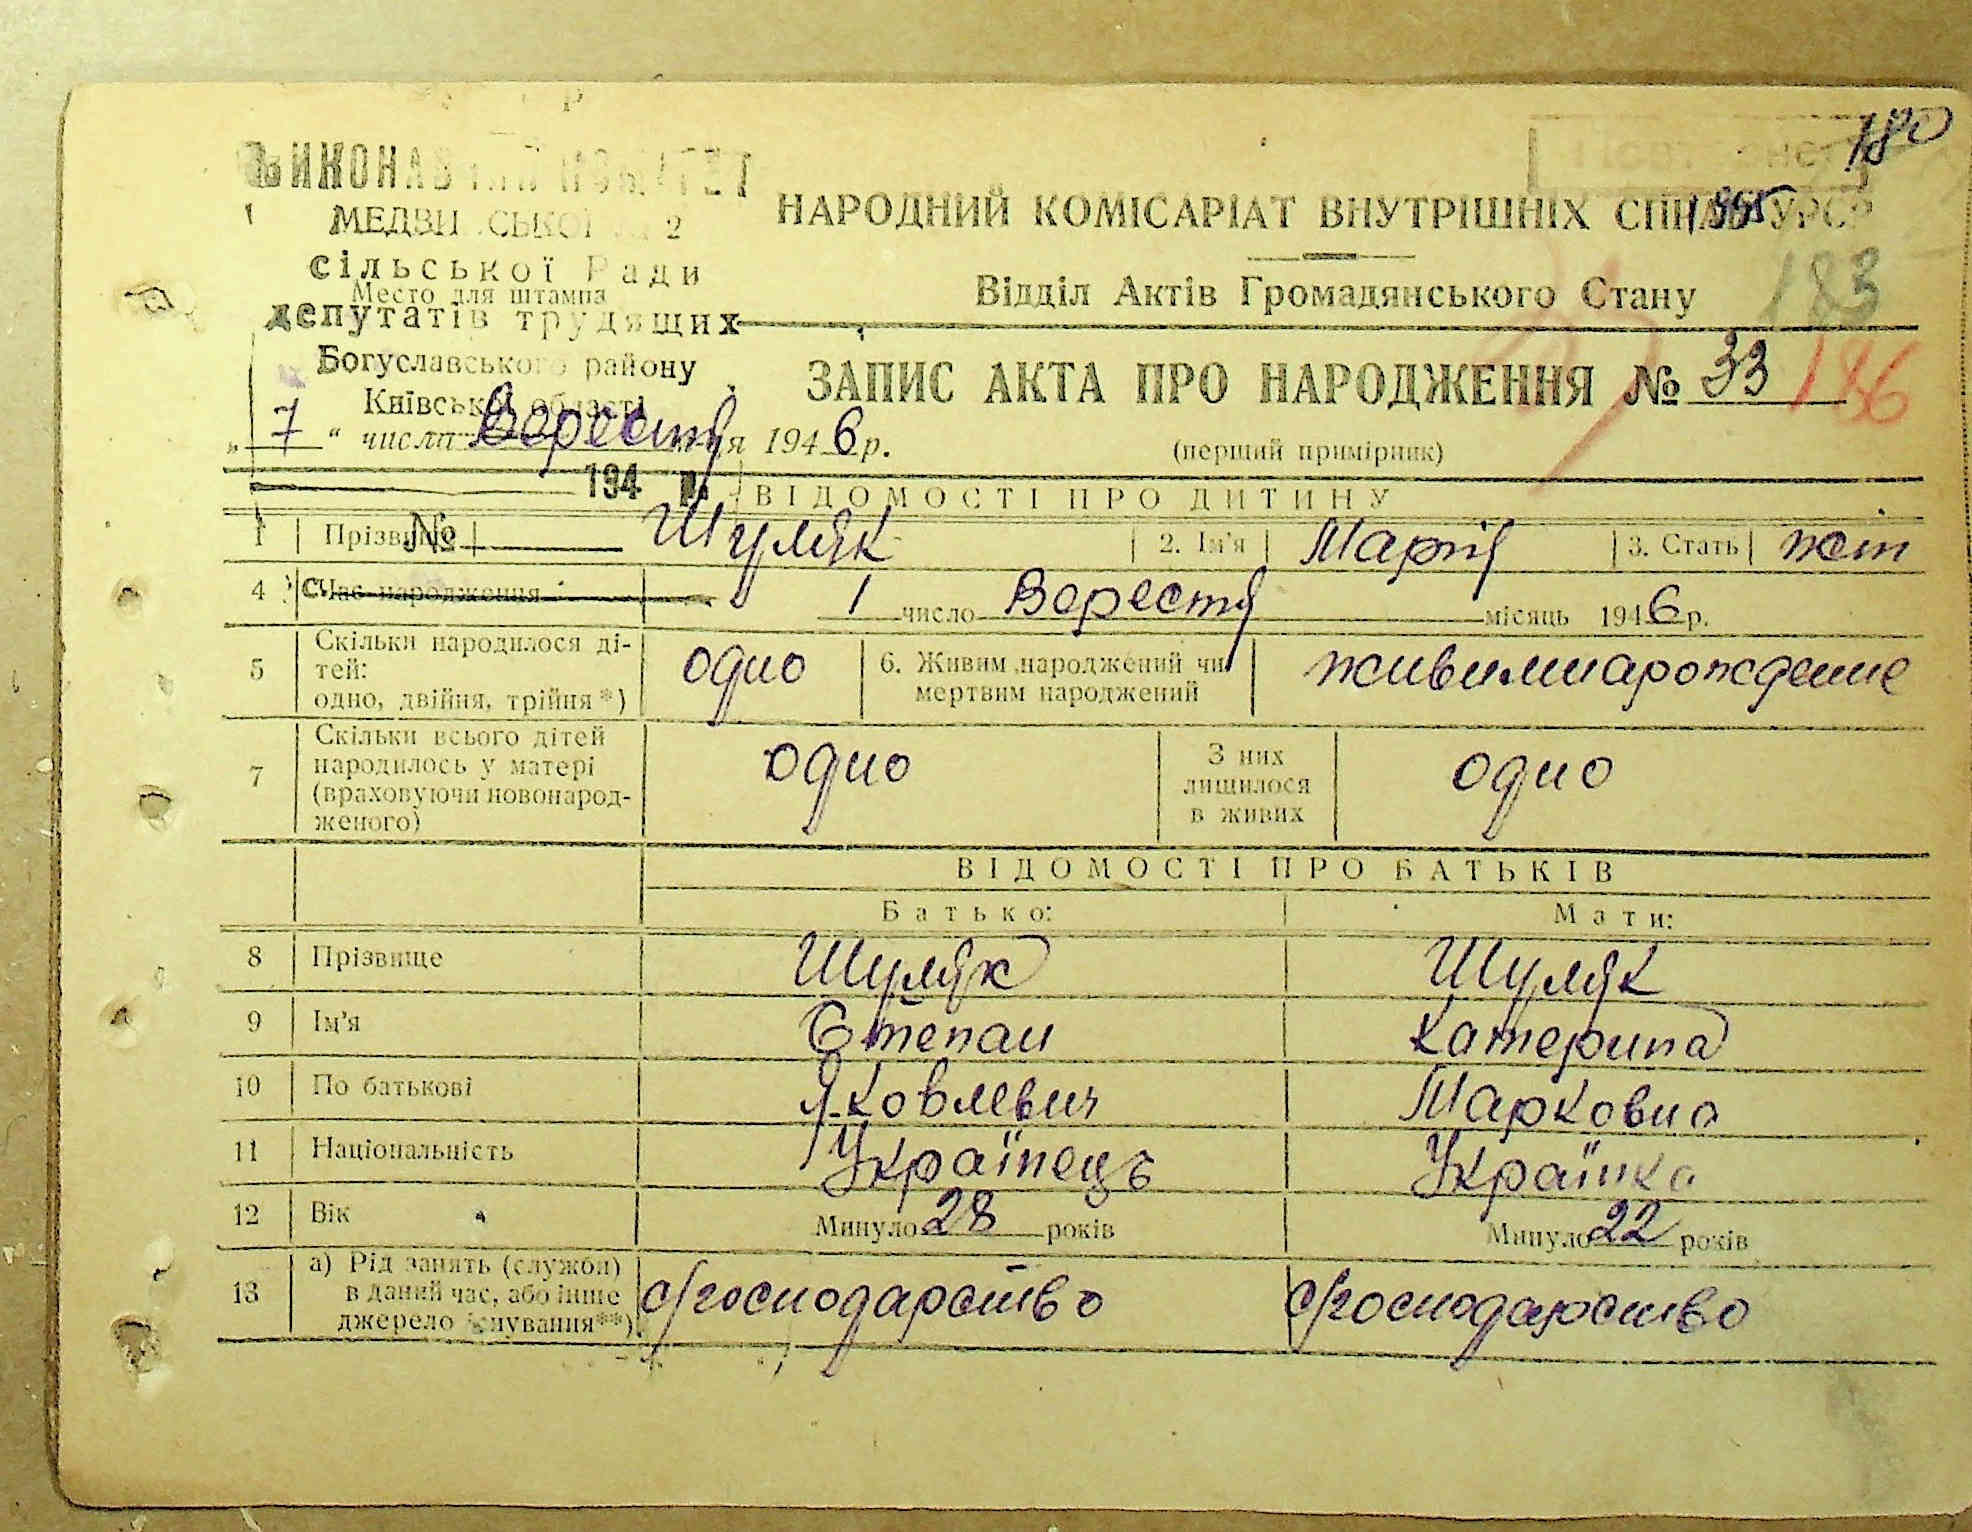 180
ВИКОНАВЧИЙ КОМІТЕТ
МЕДВИНСЬКОЇ 2
сільської Ради
Место для штампа
депутатів трудящих
Богуславського району
Київської області
194 р.
№
НАРОДНИЙ КОМІСАРІАТ ВНУТРІШНІХ СПРАВ УРСР
Відділ Актів Громадянського Стану
183
ЗАПИС АКТА ПРО НАРОДЖЕННЯ № 33
186
„ 7 “ числа Верестня 1946 р.
(перший примірник)
ВІДОМОСТІ ПРО ДИТИНУ
1 Прізвище Шуляк 2. Ім'я Марія 3. Стать жіт
4 Час народження 1 число Верестня місяць 1946 р.
5 Скільки народилося ді-
тей:
одно, двійня, трійня*) одно 6. Живим народжений чи
мертвим народжений живимнарождение
7 Скільки всього дітей
народилось у матері
(враховуючи новонарод-
женого) одно З них
лишилося
в живих одно
ВІДОМОСТІ ПРО БАТЬКІВ
Батько: Мати:
8 Прізвище Шуляк Шуляк
9 Ім'я Степан Катерина
10 По батькові Яковлевич Марковна
11 Національність Українець Українка
12 Вік Минуло 28 років Минуло 22 років
13 а) Рід занять (служби)
в даний час, або інше
джерело існування**) с/господарство с/господарство